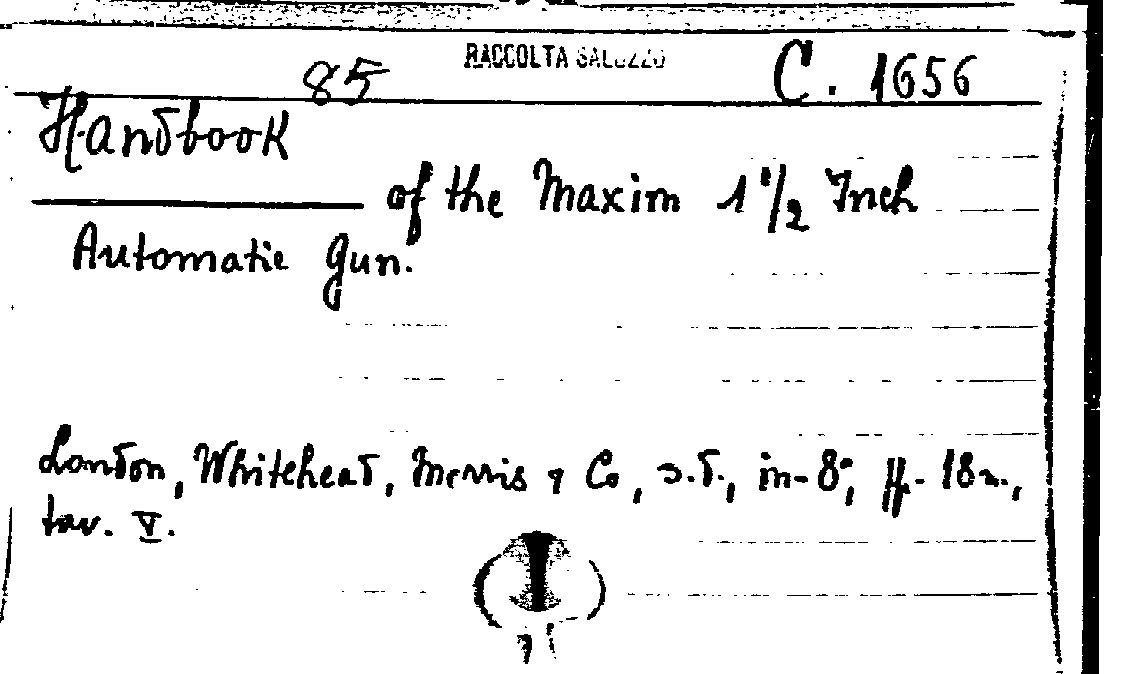 RACCOLTA SALUZZO
85 C. 1656
Handbook
of the Maxim 1 1/2 Inch
Automatic Gun.
London, Whitehead, Morris & Co, s.d., in-8°, ff. 18n.,
tav. V.